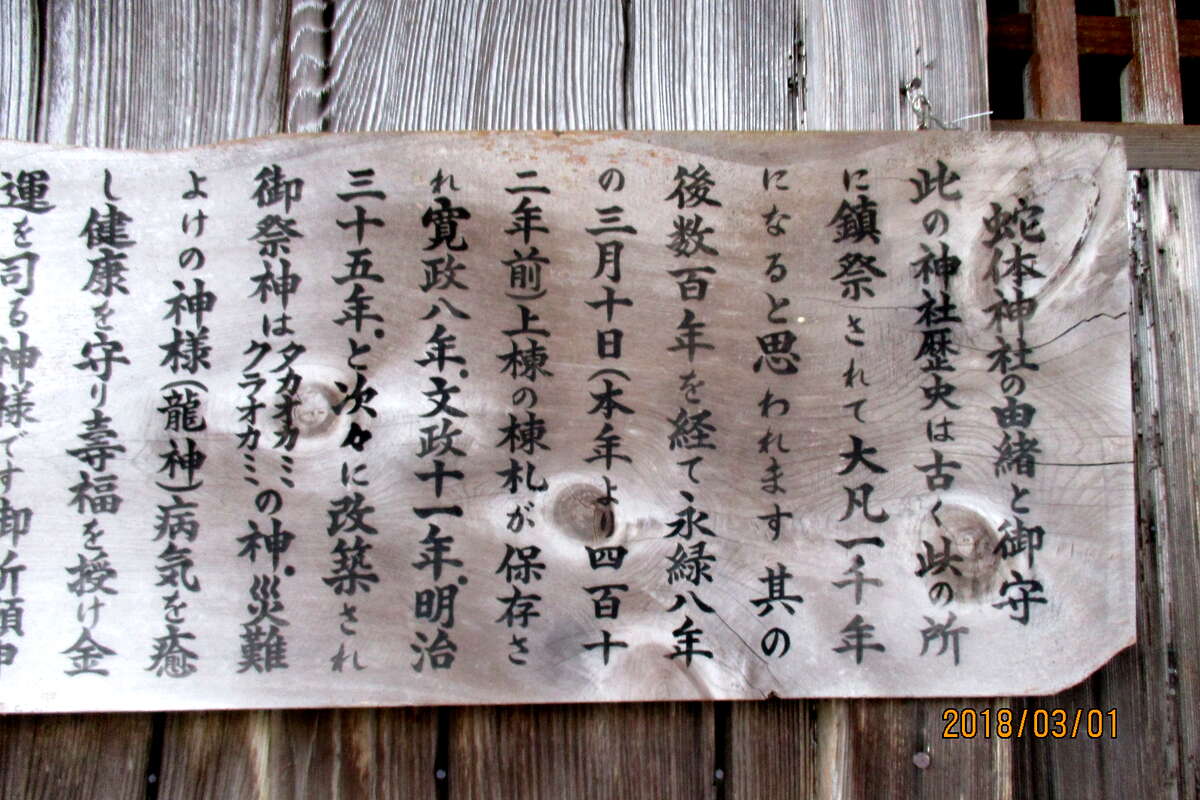 蛇体神社の由緒と御守
此の神社歴史は古く此の所
に鎮祭されて大凡一千年
になると思われます 其の
後数百年を経て永緑八年
の三月十日(本年より四百十
二年前)上棟の棟札が保存さ
れ寛政八年。文政十一年。明治
三十五年。と次々に改築され
御祭神はタカオカミ
クラオカミの神。災難
よけの神様(龍神)病気を癒
し健康を守り寿福を授け金
運を司る神様です御所願申
2018/03/01